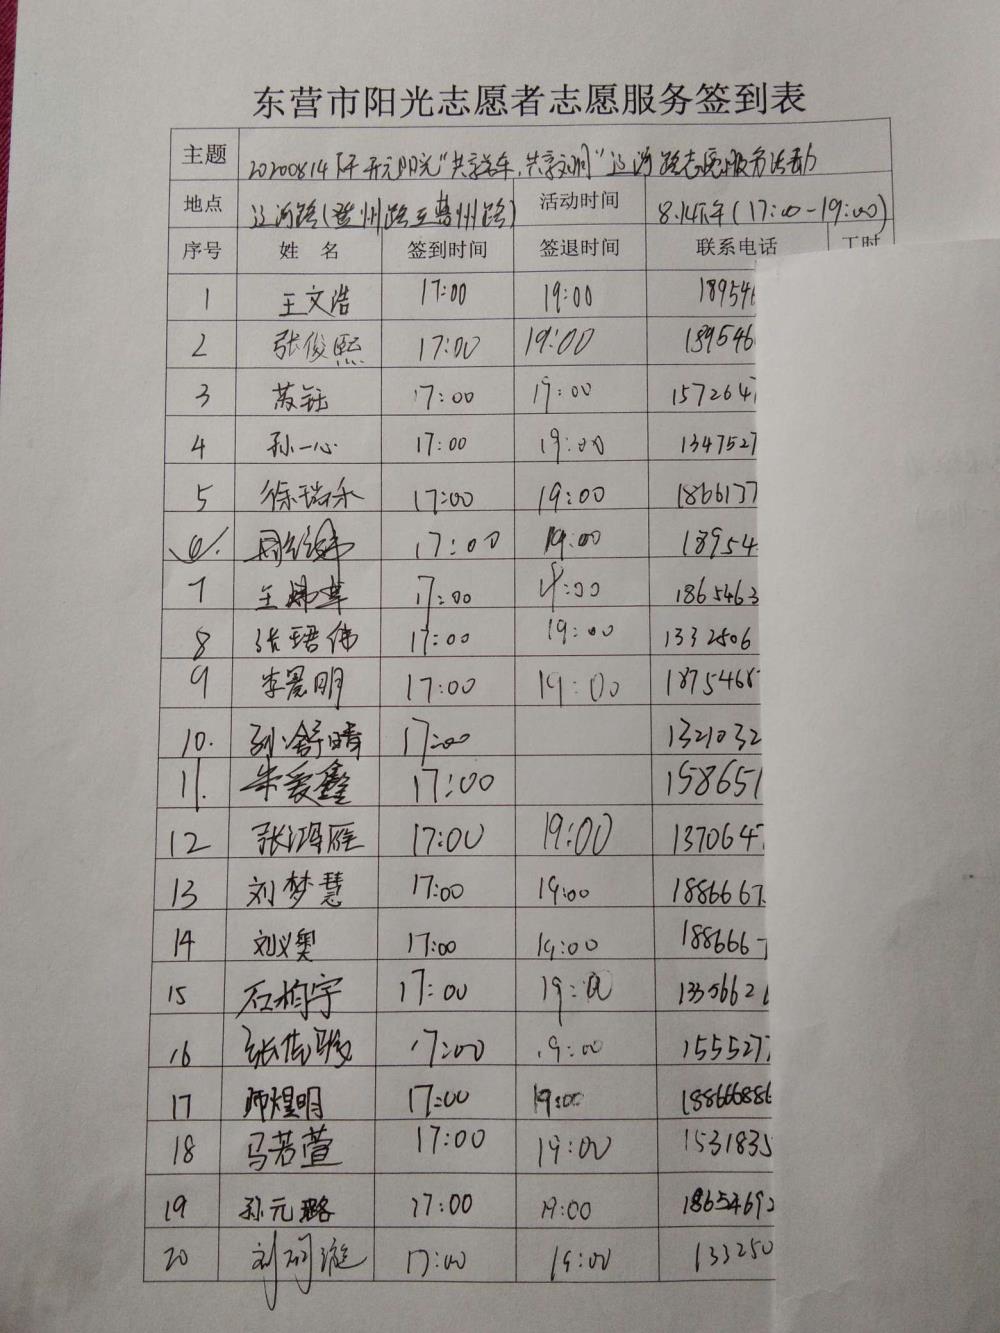 东营市阳光志愿者志愿服务签到表
主题 20200814下午开元阳光“共享单车,共享文明”辽河路志愿服务活动
地点 辽河路(登州路至普州路) 活动时间 8.14下午(17:00-19:00)
序号 姓 名 签到时间 签退时间 联系电话 工时
1 王文浩 17:00 19:00 18954
2 张俊熙 17:00 19:00 189546
3 17:00 17:00 1572647
4 孙一心 17:00 19:00 1347527
5 徐瑞禾 17:00 19:00 1866137
6 17:00 19:00 18954
7 17:00 19:00 1865463
8 张珺伟 17:00 19:00 1332506
9 李晨明 17:00 19:00 1875468
10. 舒晴 17:00 1321032
11. 朱爱鑫 17:00 158651
12 张鸿雁 17:00 19:00 1370647
13 刘梦慧 17:00 19:00 1886667
14 刘义奥 17:00 19:00 188666
15 石桓宇 17:00 19:00 1335662
16 17:00 19:00 155527
17 师煜明 17:00 19:00 188666886
18 马若萱 17:00 19:00 1531835
19 孙元璐 17:00 19:00 18654692
20 17:00 19:00 133250